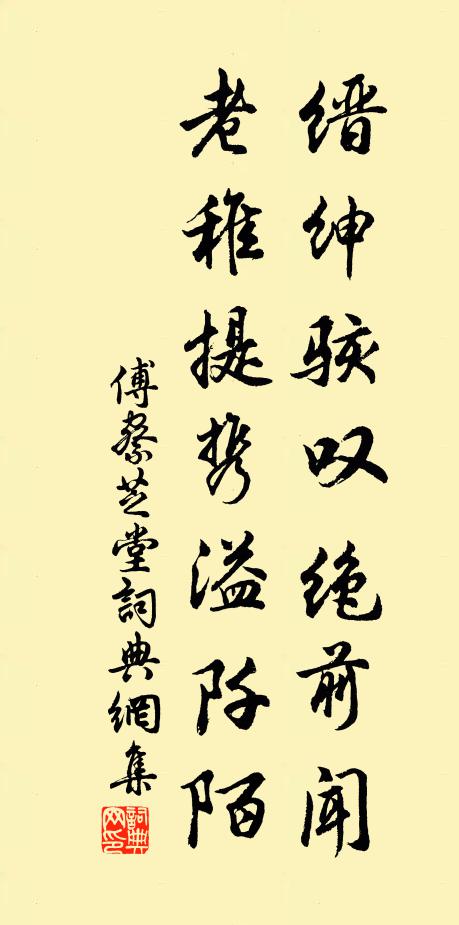 缙绅骇叹绝前闻
老稚提携溢阡陌
傅芝堂詞典網集
詞典
网印